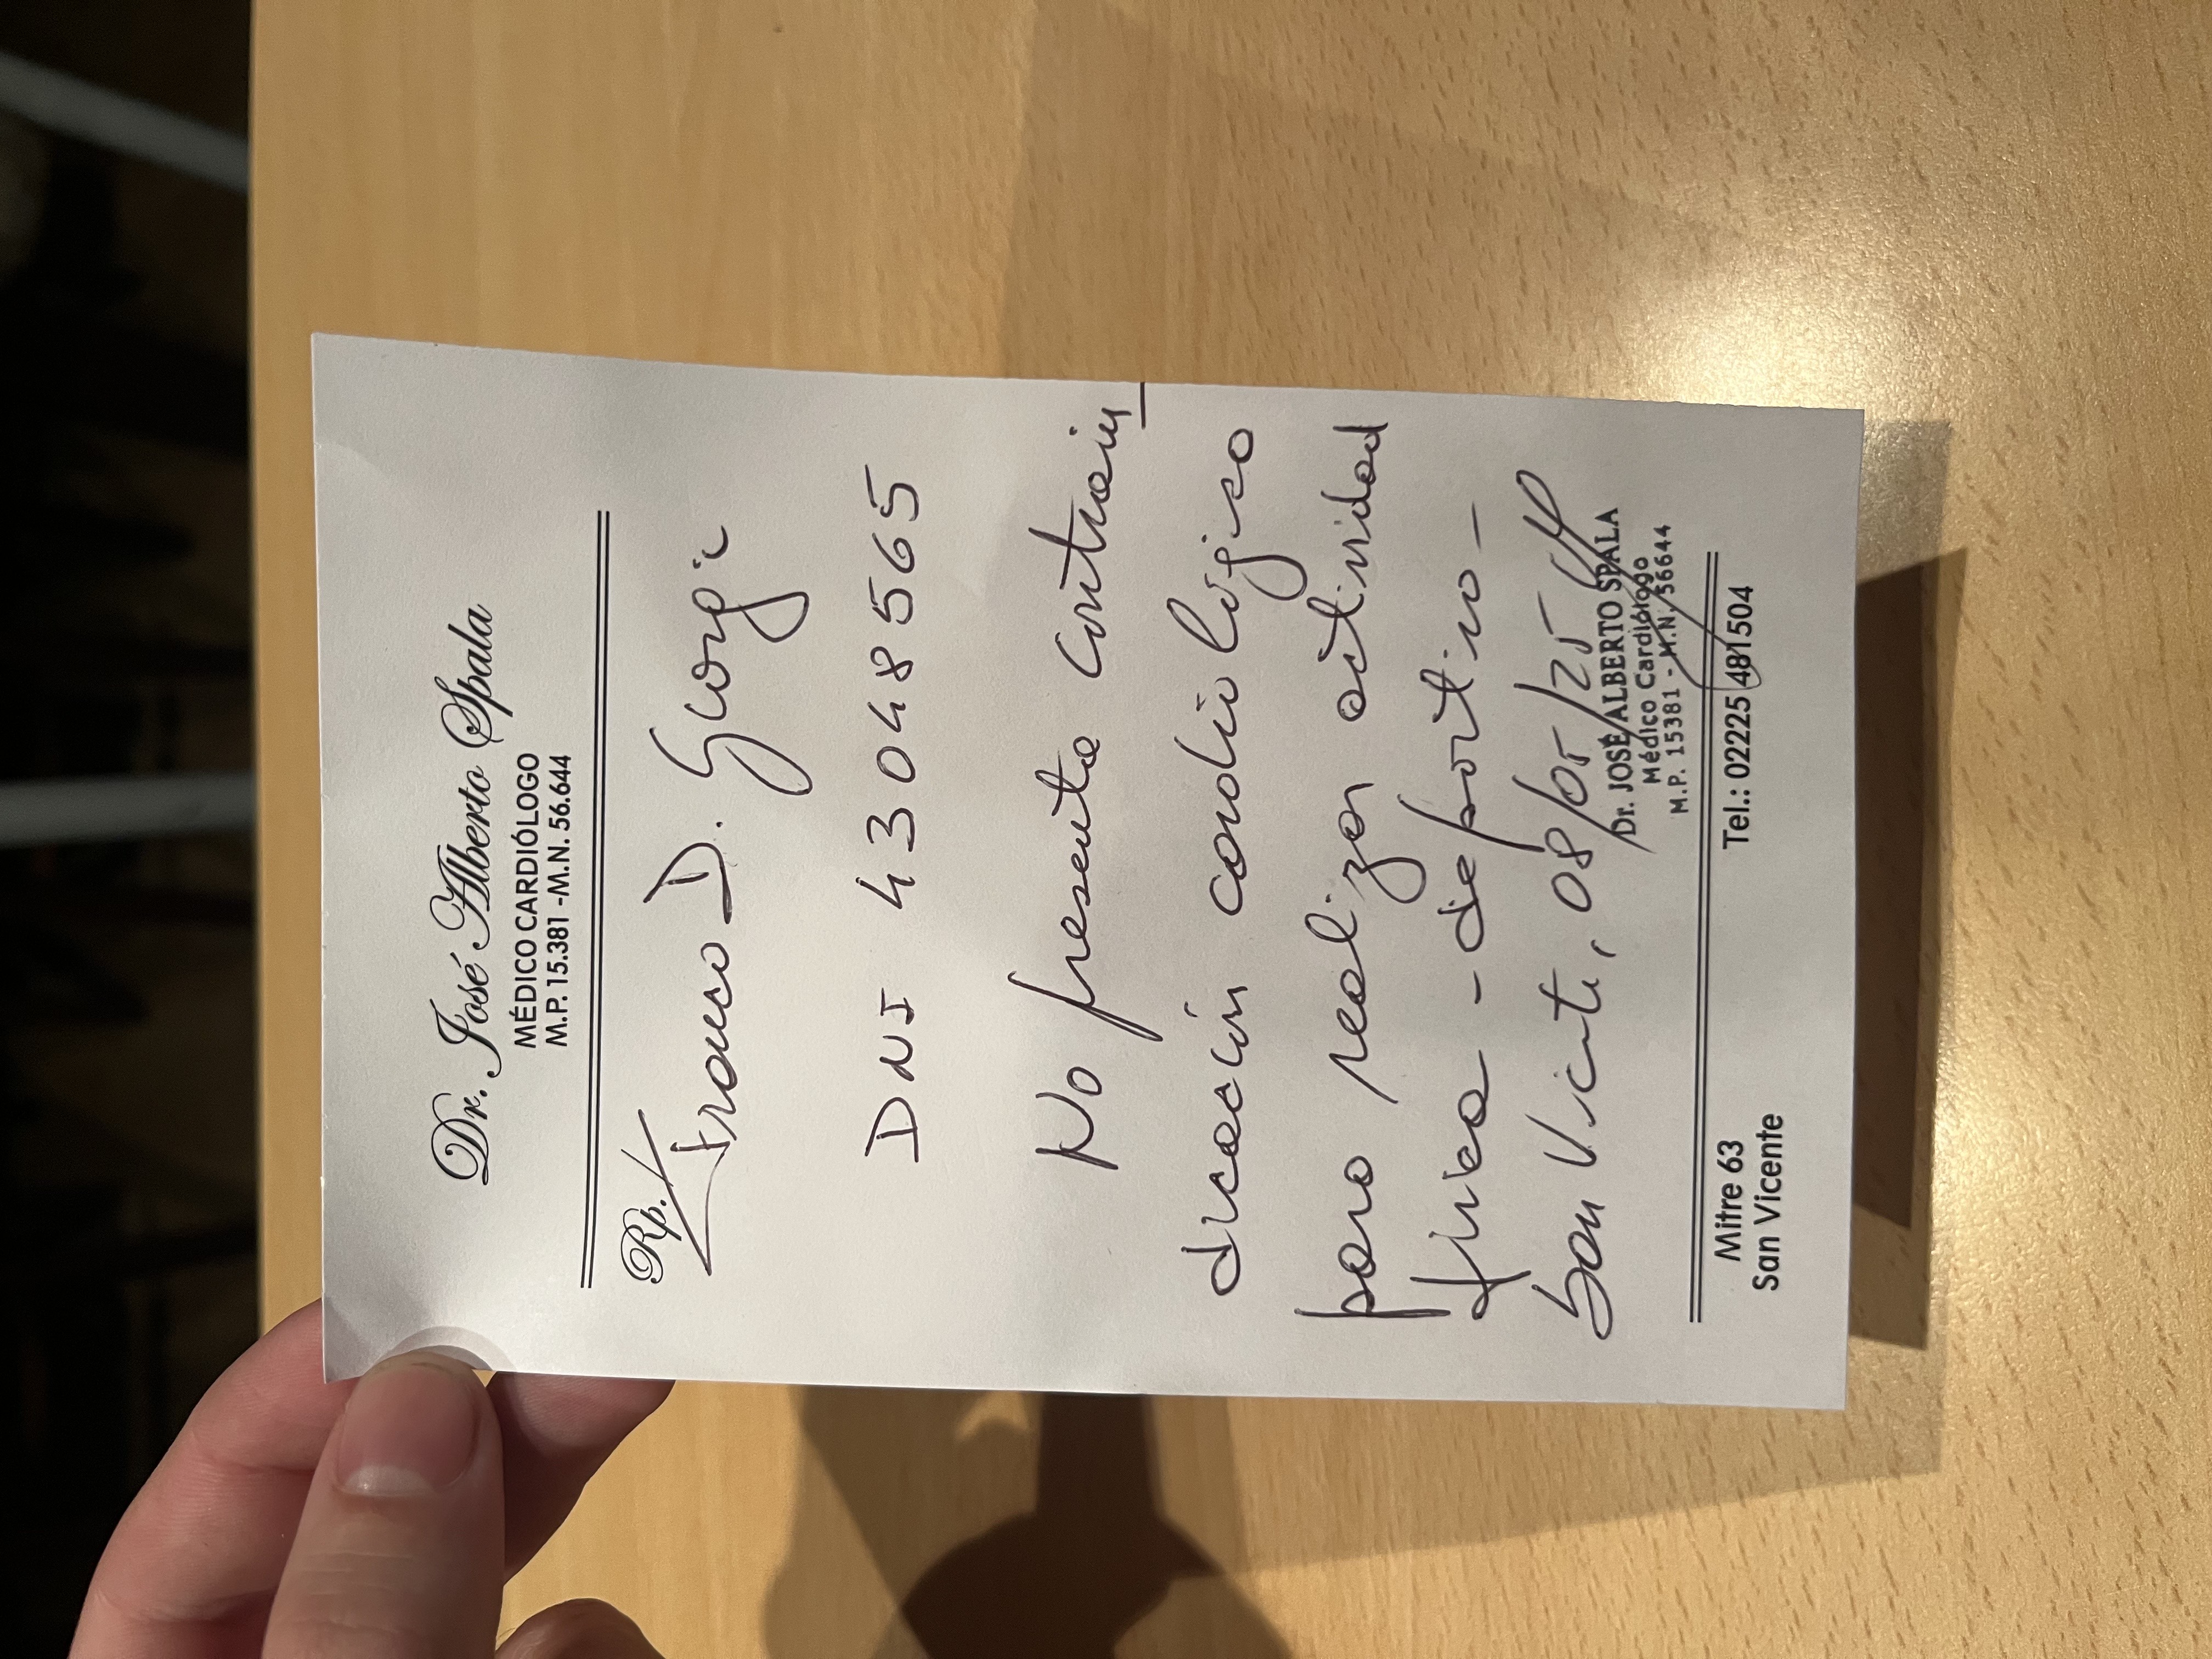 Dr. José Alberto Spala
MÉDICO CARDIÓLOGO
M.P. 15.381 -M.N. 56.644
Rp./
Franco D. Giorgi
DNI 43048565
No presenta contrain_
dicación cardiológica
para realizar actividad
física - deportiva -
San Vicente, 08/05/25
Dr. JOSÉ ALBERTO SPALA
Médico Cardiólogo
M.P. 15381 - M.N. 56644
Mitre 63
San Vicente
Tel.: 02225 481504